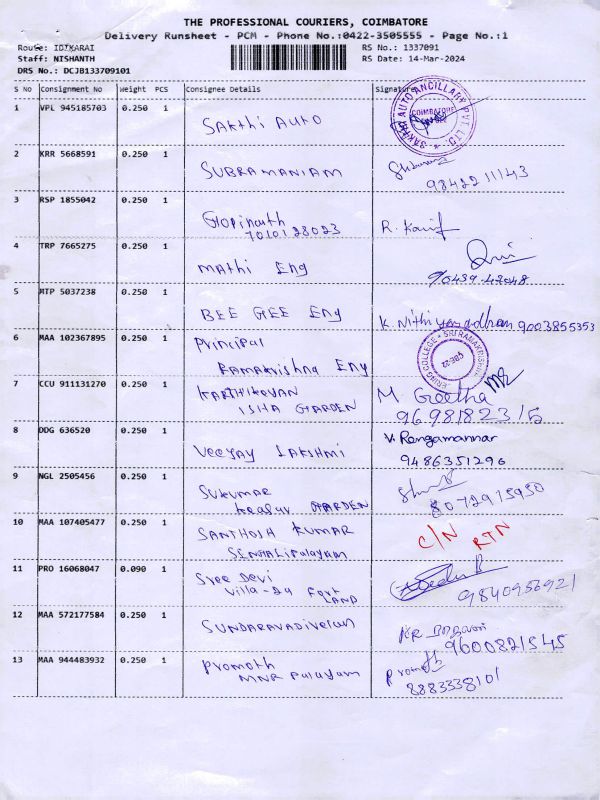 THE PROFESSIONAL COURIERS, COIMBATORE
Delivery Runsheet - PCM - Phone No.:0422-3505555 - Page No.:1
Route: IDIKARAI
RS No.: 1337091
Staff: NISHANTH
RS Date: 14-Mar-2024
DRS No.: DCJB133709101
S No Consignment No Weight PCS Consignee Details Signature
1 VPL 945185703 0.250 1 Sakthi Auto
SAKTHI AUTO ANCILLARY PVT. LTD. COIMBATORE
2 KRR 5668591 0.250 1 SUBRAMANIAM
9842211143
3 RSP 1855042 0.250 1 Gopinath R. Kanif
7010128023
4 TRP 7665275 0.250 1 Mathi Eng
90439-42048
5 MTP 5037238 0.250 1 BEE GEE Eng K. Nithiyanandhan 9003855353
6 MAA 102367895 0.250 1 Principal
Ramakrishna Eng
7 CCU 911131270 0.250 1 KARTHIKEYAN M Geetha
ISHA GARDEN 9698182315
8 DDG 636520 0.250 1 Veejay LAKSHMI V. Rengamannar
9486351296
9 NGL 2505456 0.250 1 Sukumar
GARDEN 8072915950
10 MAA 107405477 0.250 1 SANTHOSH KUMAR C/N RTN
SENGALIPalayam
11 PRO 16068047 0.090 1 Sree Devi
Villa-24 Fort LAND 9840956921
12 MAA 572177584 0.250 1 SUNDARAVADIVELAN
9600821545
13 MAA 944483932 0.250 1 Promoth Promoth
MNR Palayam 8883338101